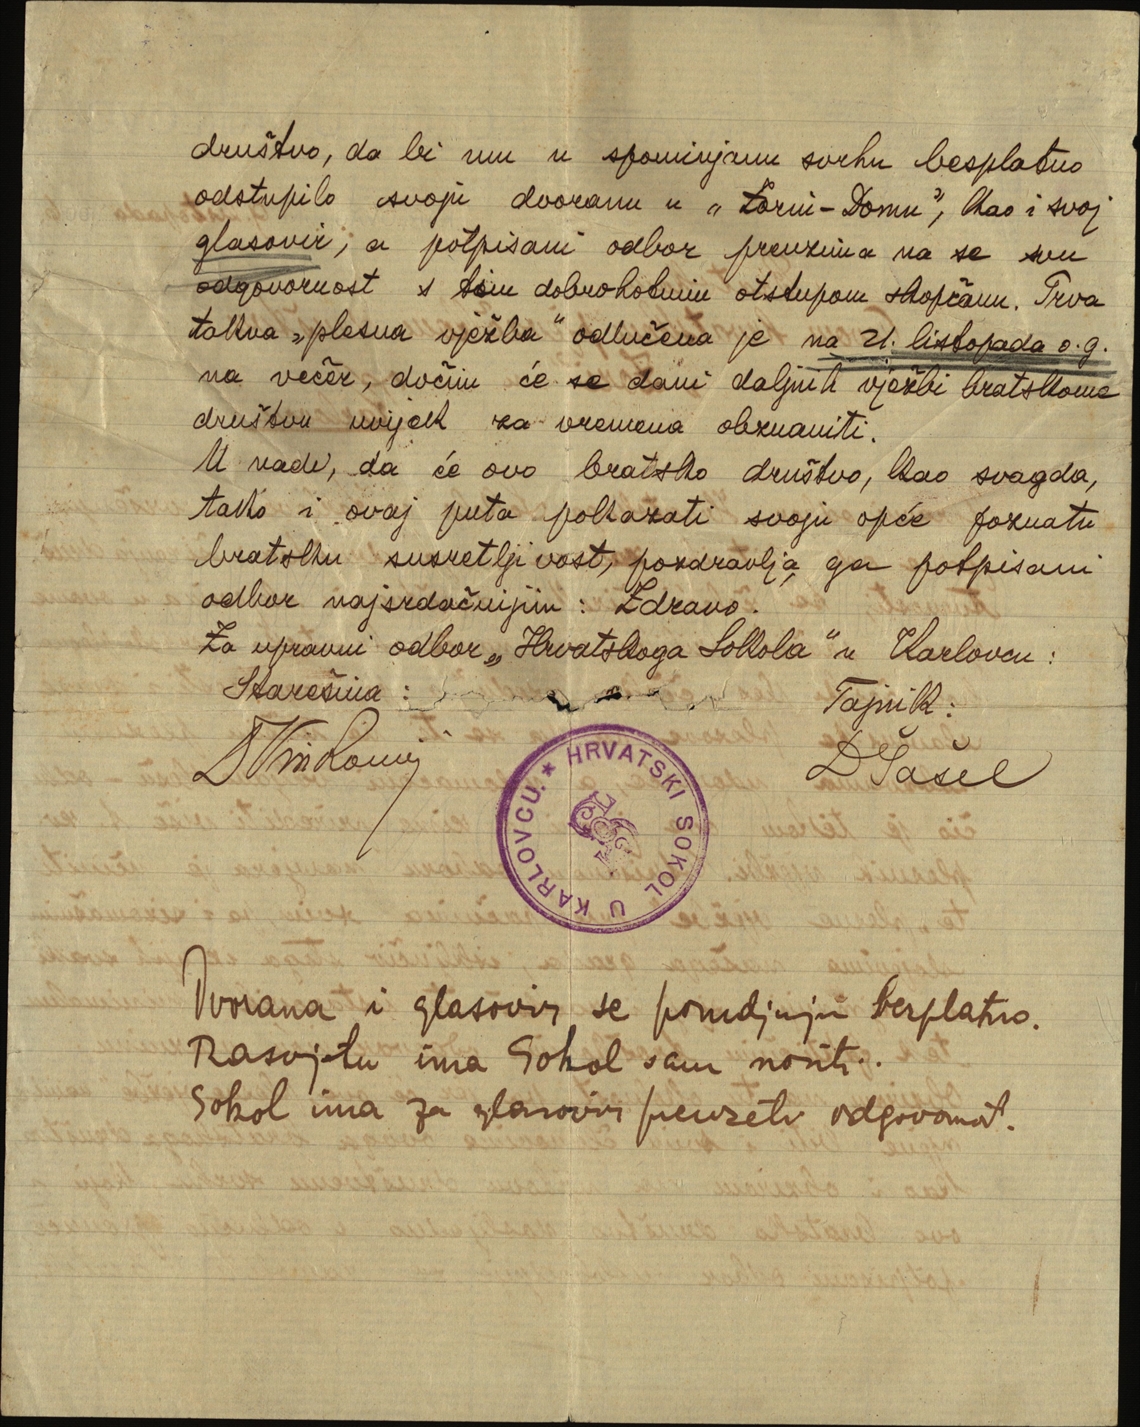 društvo, da bi mu u spominjanu svrhu besplatno
odstupilo svoju dvoranu u „Zorin-Domu", kao i svoj
glasovir, a potpisani odbor preuzima na se svu
odgovornost s tim dobrohotnim otstupom skopčanu. Prva
takva „plesna vježba" odlučena je na 21. listopada o.g.
na večer, dočim će se dani daljnih vježbi bratskome
društvu uvijek za vremena obznaniti.
U nadi, da će ovo bratsko društvo, kao svagda,
tako i ovaj puta pokazati svoju opće poznatu
bratsku susretljivost, pozdravlja ga potpisani
odbor najsrdačnijim: Zdravo.
Za upravni odbor „Hrvatskoga Sokola" u Karlovcu:
Starešina: Tajnik:
D Šašel
HRVATSKI SOKOL U KARLOVCU. *
Dvorana i glasovir se ponudjuju besplatno.
Rasvjetu ima Sokol sam nositi.
Sokol ima za glasovir preuzeti odgovornost.